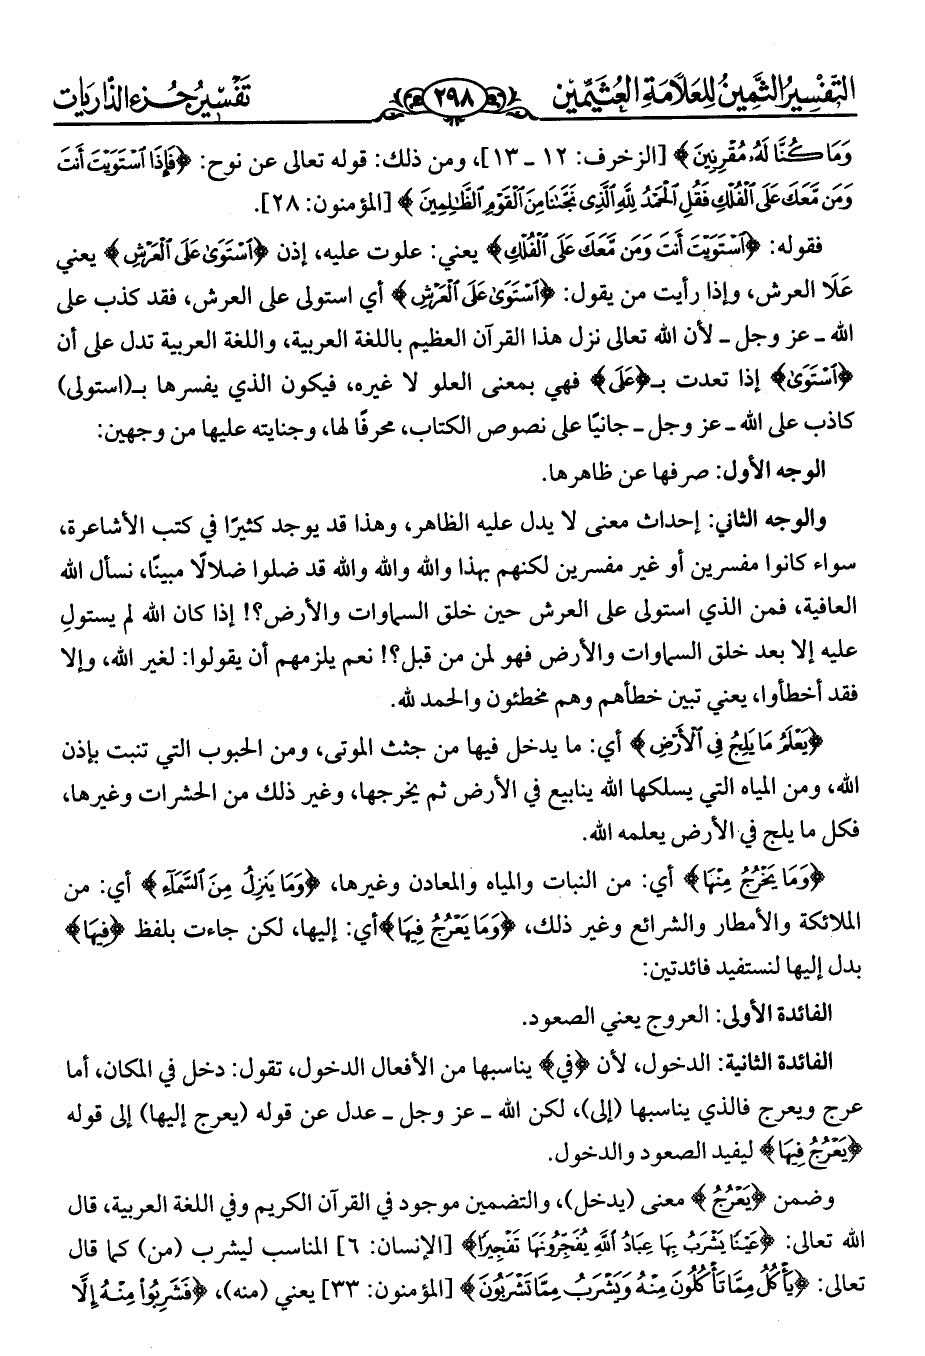 التفسير الثمين للعلامة العثيمين ٢٩٨ تفسير جزء الذاريات
وَمَا كُنَّا لَهُۥ مُقْرِنِينَ﴾ [الزخرف: ١٢ ـ ١٣]، ومن ذلك: قوله تعالى عن نوح: ﴿فَإِذَا ٱسْتَوَيْتَ أَنتَ
وَمَن مَّعَكَ عَلَى ٱلْفُلْكِ فَقُلِ ٱلْحَمْدُ لِلَّهِ ٱلَّذِى نَجَّىٰنَا مِنَ ٱلْقَوْمِ ٱلظَّٰلِمِينَ﴾ [المؤمنون: ٢٨].
فقوله: ﴿ٱسْتَوَيْتَ أَنتَ وَمَن مَّعَكَ عَلَى ٱلْفُلْكِ﴾ يعني: علوت عليه، إذن ﴿ٱسْتَوَىٰ عَلَى ٱلْعَرْشِ﴾ يعني
عَلَا العرش، وإذا رأيت من يقول: ﴿ٱسْتَوَىٰ عَلَى ٱلْعَرْشِ﴾ أي استولى على العرش، فقد كذب على
الله ـ عز وجل ـ لأن الله تعالى نزل هذا القرآن العظيم باللغة العربية، واللغة العربية تدل على أن
﴿ٱسْتَوَىٰ﴾ إذا تعدت بـ﴿عَلَى﴾ فهي بمعنى العلو لا غيره، فيكون الذي يفسرها بـ(استولى)
كاذب على الله ـ عز وجل ـ جانيًا على نصوص الكتاب، محرفًا لها، وجنايته عليها من وجهين:
الوجه الأول: صرفها عن ظاهرها.
والوجه الثاني: إحداث معنى لا يدل عليه الظاهر، وهذا قد يوجد كثيرًا في كتب الأشاعرة،
سواء كانوا مفسرين أو غير مفسرين لكنهم بهذا والله والله والله قد ضلوا ضلالًا مبينًا، نسأل الله
العافية، فمن الذي استولى على العرش حين خلق السماوات والأرض؟! إذا كان الله لم يستولِ
عليه إلا بعد خلق السماوات والأرض فهو لمن من قبل؟! نعم يلزمهم أن يقولوا: لغير الله، وإلا
فقد أخطأوا، يعني تبين خطأهم وهم مخطئون والحمد لله.
﴿يَعْلَمُ مَا يَلِجُ فِى ٱلْأَرْضِ﴾ أي: ما يدخل فيها من جثث الموتى، ومن الحبوب التي تنبت بإذن
الله، ومن المياه التي يسلكها الله ينابيع في الأرض ثم يخرجها، وغير ذلك من الحشرات وغيرها،
فكل ما يلج في الأرض يعلمه الله.
﴿وَمَا يَخْرُجُ مِنْهَا﴾ أي: من النبات والمياه والمعادن وغيرها، ﴿وَمَا يَنزِلُ مِنَ ٱلسَّمَآءِ﴾ أي: من
الملائكة والأمطار والشرائع وغير ذلك، ﴿وَمَا يَعْرُجُ فِيهَا﴾أي: إليها، لكن جاءت بلفظ ﴿فِيهَا﴾
بدل إليها لنستفيد فائدتين:
الفائدة الأولى: العروج يعني الصعود.
الفائدة الثانية: الدخول، لأن ﴿فِي﴾ يناسبها من الأفعال الدخول، تقول: دخل في المكان، أما
عرج ويعرج فالذي يناسبها (إلى)، لكن الله ـ عز وجل ـ عدل عن قوله (يعرج إليها) إلى قوله
﴿يَعْرُجُ فِيهَا﴾ ليفيد الصعود والدخول.
وضمن ﴿يَعْرُجُ﴾ معنى (يدخل)، والتضمين موجود في القرآن الكريم وفي اللغة العربية، قال
الله تعالى: ﴿عَيْنًا يَشْرَبُ بِهَا عِبَادُ ٱللَّهِ يُفَجِّرُونَهَا تَفْجِيرًا﴾ [الإنسان: ٦] المناسب ليشرب (من) كما قال
تعالى: ﴿يَأْكُلُ مِمَّا تَأْكُلُونَ مِنْهُ وَيَشْرَبُ مِمَّا تَشْرَبُونَ﴾ [المؤمنون: ٣٣] يعني (منه)، ﴿فَشَرِبُوا۟ مِنْهُ إِلَّا